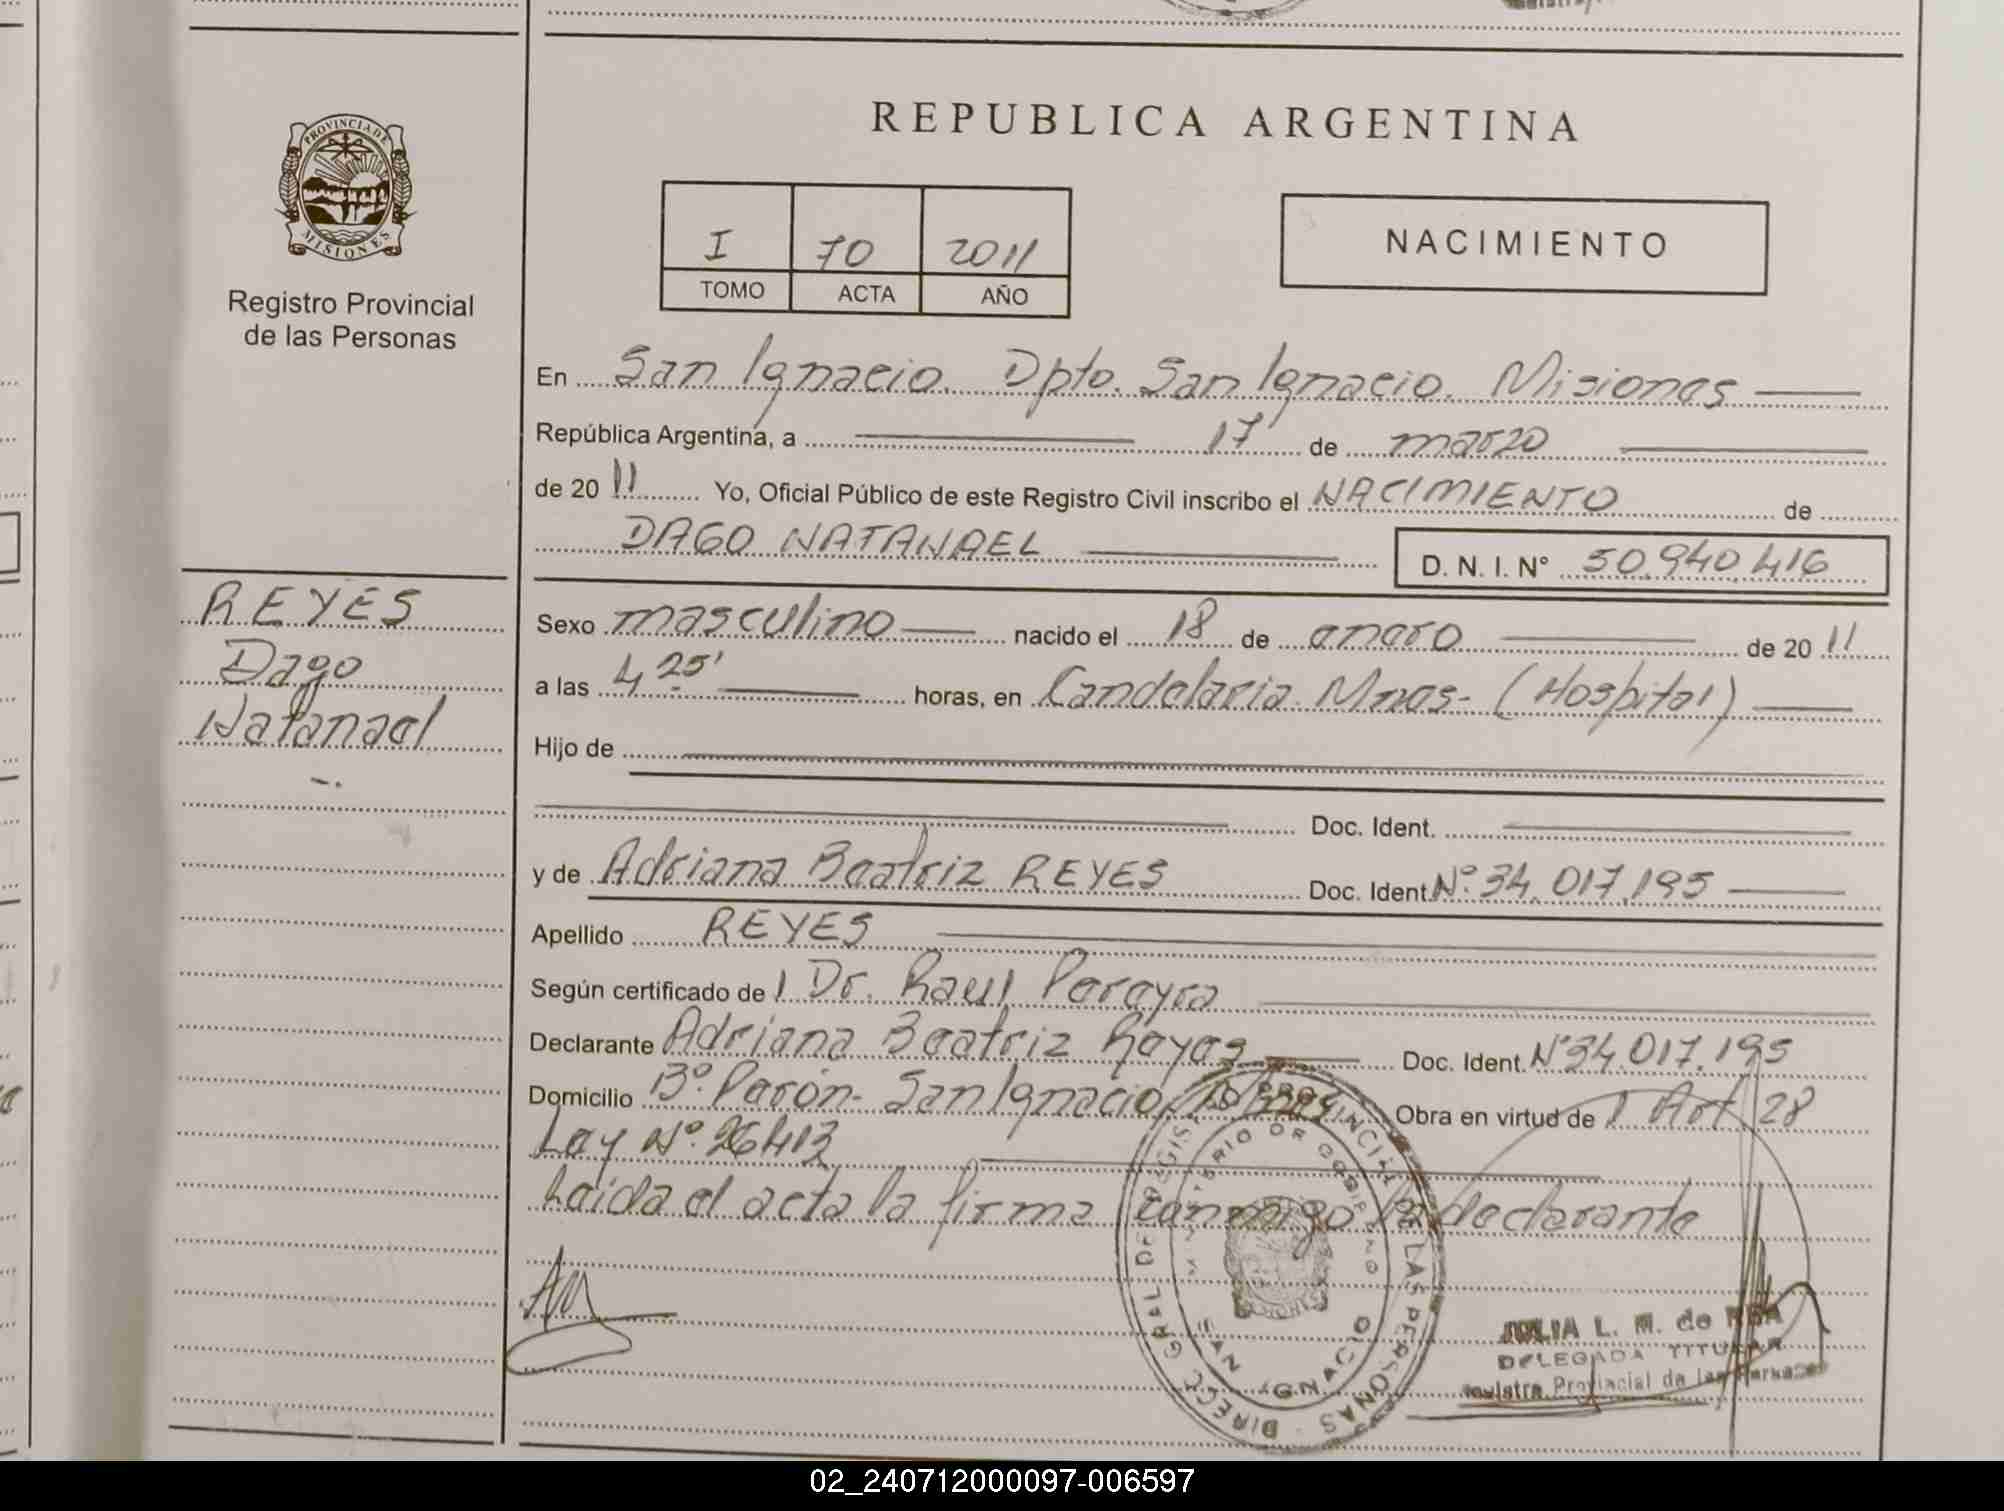 REPUBLICA ARGENTINA
PROVINCIA DE
MISIONES
Registro Provincial
de las Personas
I 70 2011
TOMO ACTA AÑO
NACIMIENTO
En San Ignacio. Dpto. San Ignacio. Misiones
República Argentina, a 17 de marzo
de 2011 Yo, Oficial Público de este Registro Civil inscribo el NACIMIENTO de
DAGO NATANAEL D. N. I. Nº 50.940.416
REYES
Dago
Natanael
Sexo masculino nacido el 18 de enero de 2011
a las 4 25' horas, en Candelaria Mnes- (Hospital)
Hijo de
Doc. Ident.
y de Adriana Beatriz REYES Doc. Ident. Nº.34.017.195
Apellido REYES
Según certificado de l Dr. Raul Pereyra
Declarante Adriana Beatriz Reyes Doc. Ident. Nº34.017.195
Domicilio Bº. Perón- San Ignacio Obra en virtud de l Art 28
Ley Nº.26413
Leída el acta la firma conmigo la declarante
DIRECC. GRAL DE REGIST. PROVINCIAL DE LAS PERSONAS
MINISTERIO DE GOBIERNO
SAN IGNACIO
JULIA L. M. de REA
DELEGADA TITULAR
Registro Provincial de las Personas
02_240712000097-006597